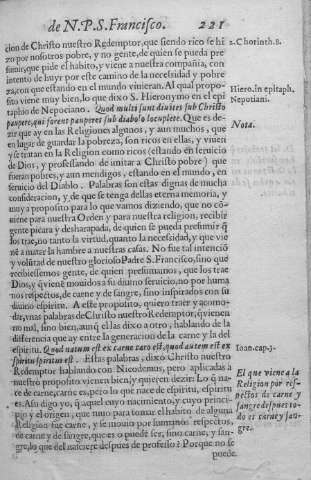 de N.P.S. Francisco. 221
cion de Christo nuestro Redemptor, que siendo rico se hi
zo por nosotros pobre, y no gente, de quien se pueda pre
sumir, que pide el habito, y viene a nuestra compañia, con
intento de huyr por este camino de la necessidad y pobre
za, con que estando en el mundo vivieran. Al qual propo-
sito viene muy bien, lo que dixo S. Hieronymo en el epi
taphio de Nepociano. Quod multi sunt divites sub Christo
paupere, qui forent pauperes sub diabolo locuplete. Que es de-
zir que ay en las Religiones algunos, y aun muchos, que
en lugar de guardar la pobreza, son ricos en ellas, y viven
y se tratan en la Religion como ricos (estando en servicio
de Dios, y professando de imitar a Christo pobre) que
fueran pobres, y aun mendigos, estando en el mundo, en
servicio del Diablo. Palabras son estas dignas de mucha
consideracion, y de que se tenga dellas eterna memoria, y
muy a proposito para lo que vamos diziendo, que no cō-
viene para nuestra Orden y para nuestra religion, recibir
gente picara y desharapada, de quien se pueda presumir q̄
los trae, no tanto la virtud, quanto la necessidad, y que vie
nē a matar la hambre a nuestras casas. No fue tal intenciō
y volūtad de nuestro glorioso Padre S. Francisco, sino que
recibiessemos gente, de quien presumamos, que los trae
Dios, y q̄ vienē movidos a su divino servicio, no por huma
nos respectos, de carne y de sangre, sino inspirados con su
divino espiritu. A este proposito, quiero traer y acomo-
dar, unas palabras de Christo nuestro Redemptor, q̄ vienen
no mal, sino bien, aunq̄ el las dixo a otro, hablando de la
differencia que ay entre la generacion de la carne y la del
espiritu. Quod natum est ex carne caro est, quod autem est ex
spiritu spiritus est. Estas palabras, dixo Christo nuestro
Redemptor hablando con Nicodemus, pero aplicadas a
nuestro proposito vienen bien, y quieren dezir: Lo q̄ na-
ce de carne, carne es, pero lo que nace de espiritu, espiritu
es. Assi digo yo, q̄ aquel cuyo nacimiento, y cuyo princi-
pio y el origen, que tuvo para tomar el habito de alguna
Religion fue carne, y se movio por humanos respectos,
de carne y de sangre, que es o puede ser, sino carne, y san-
gre, lo que del naciere despues de professo? Porque no se
puede.
2. Chorinth. 8.
Hiero. in epitaph.
Nepotiani.
Nota.
Ioan. cap. 3.
El que viene a la
Religion por res-
pectos de carne y
sangre despues to-
do es carne y san-
gre.